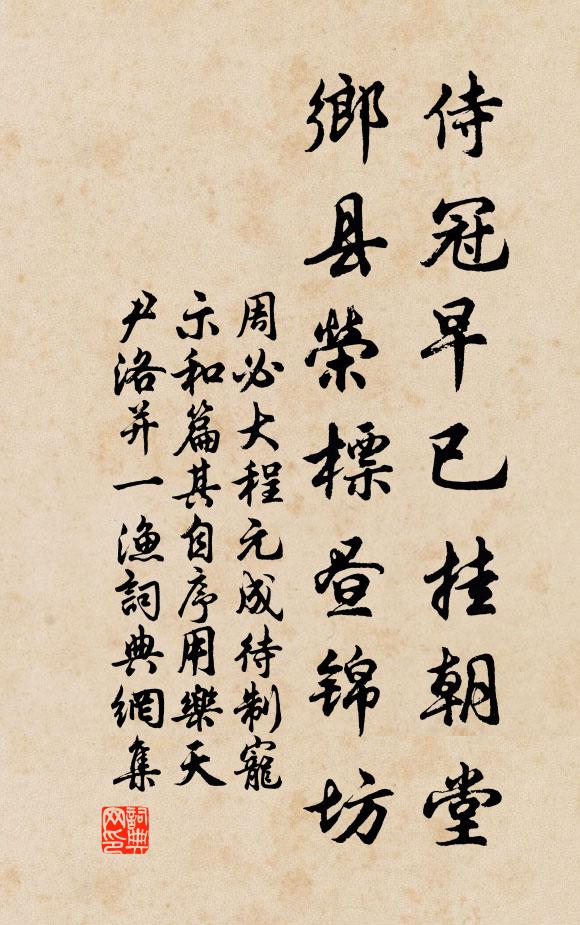 侍冠早已挂朝堂
鄉县榮標昼锦坊
周必大程元成待制寵
示和篇其自序用樂天
尹洛并一漁詞典網集
詞典网印